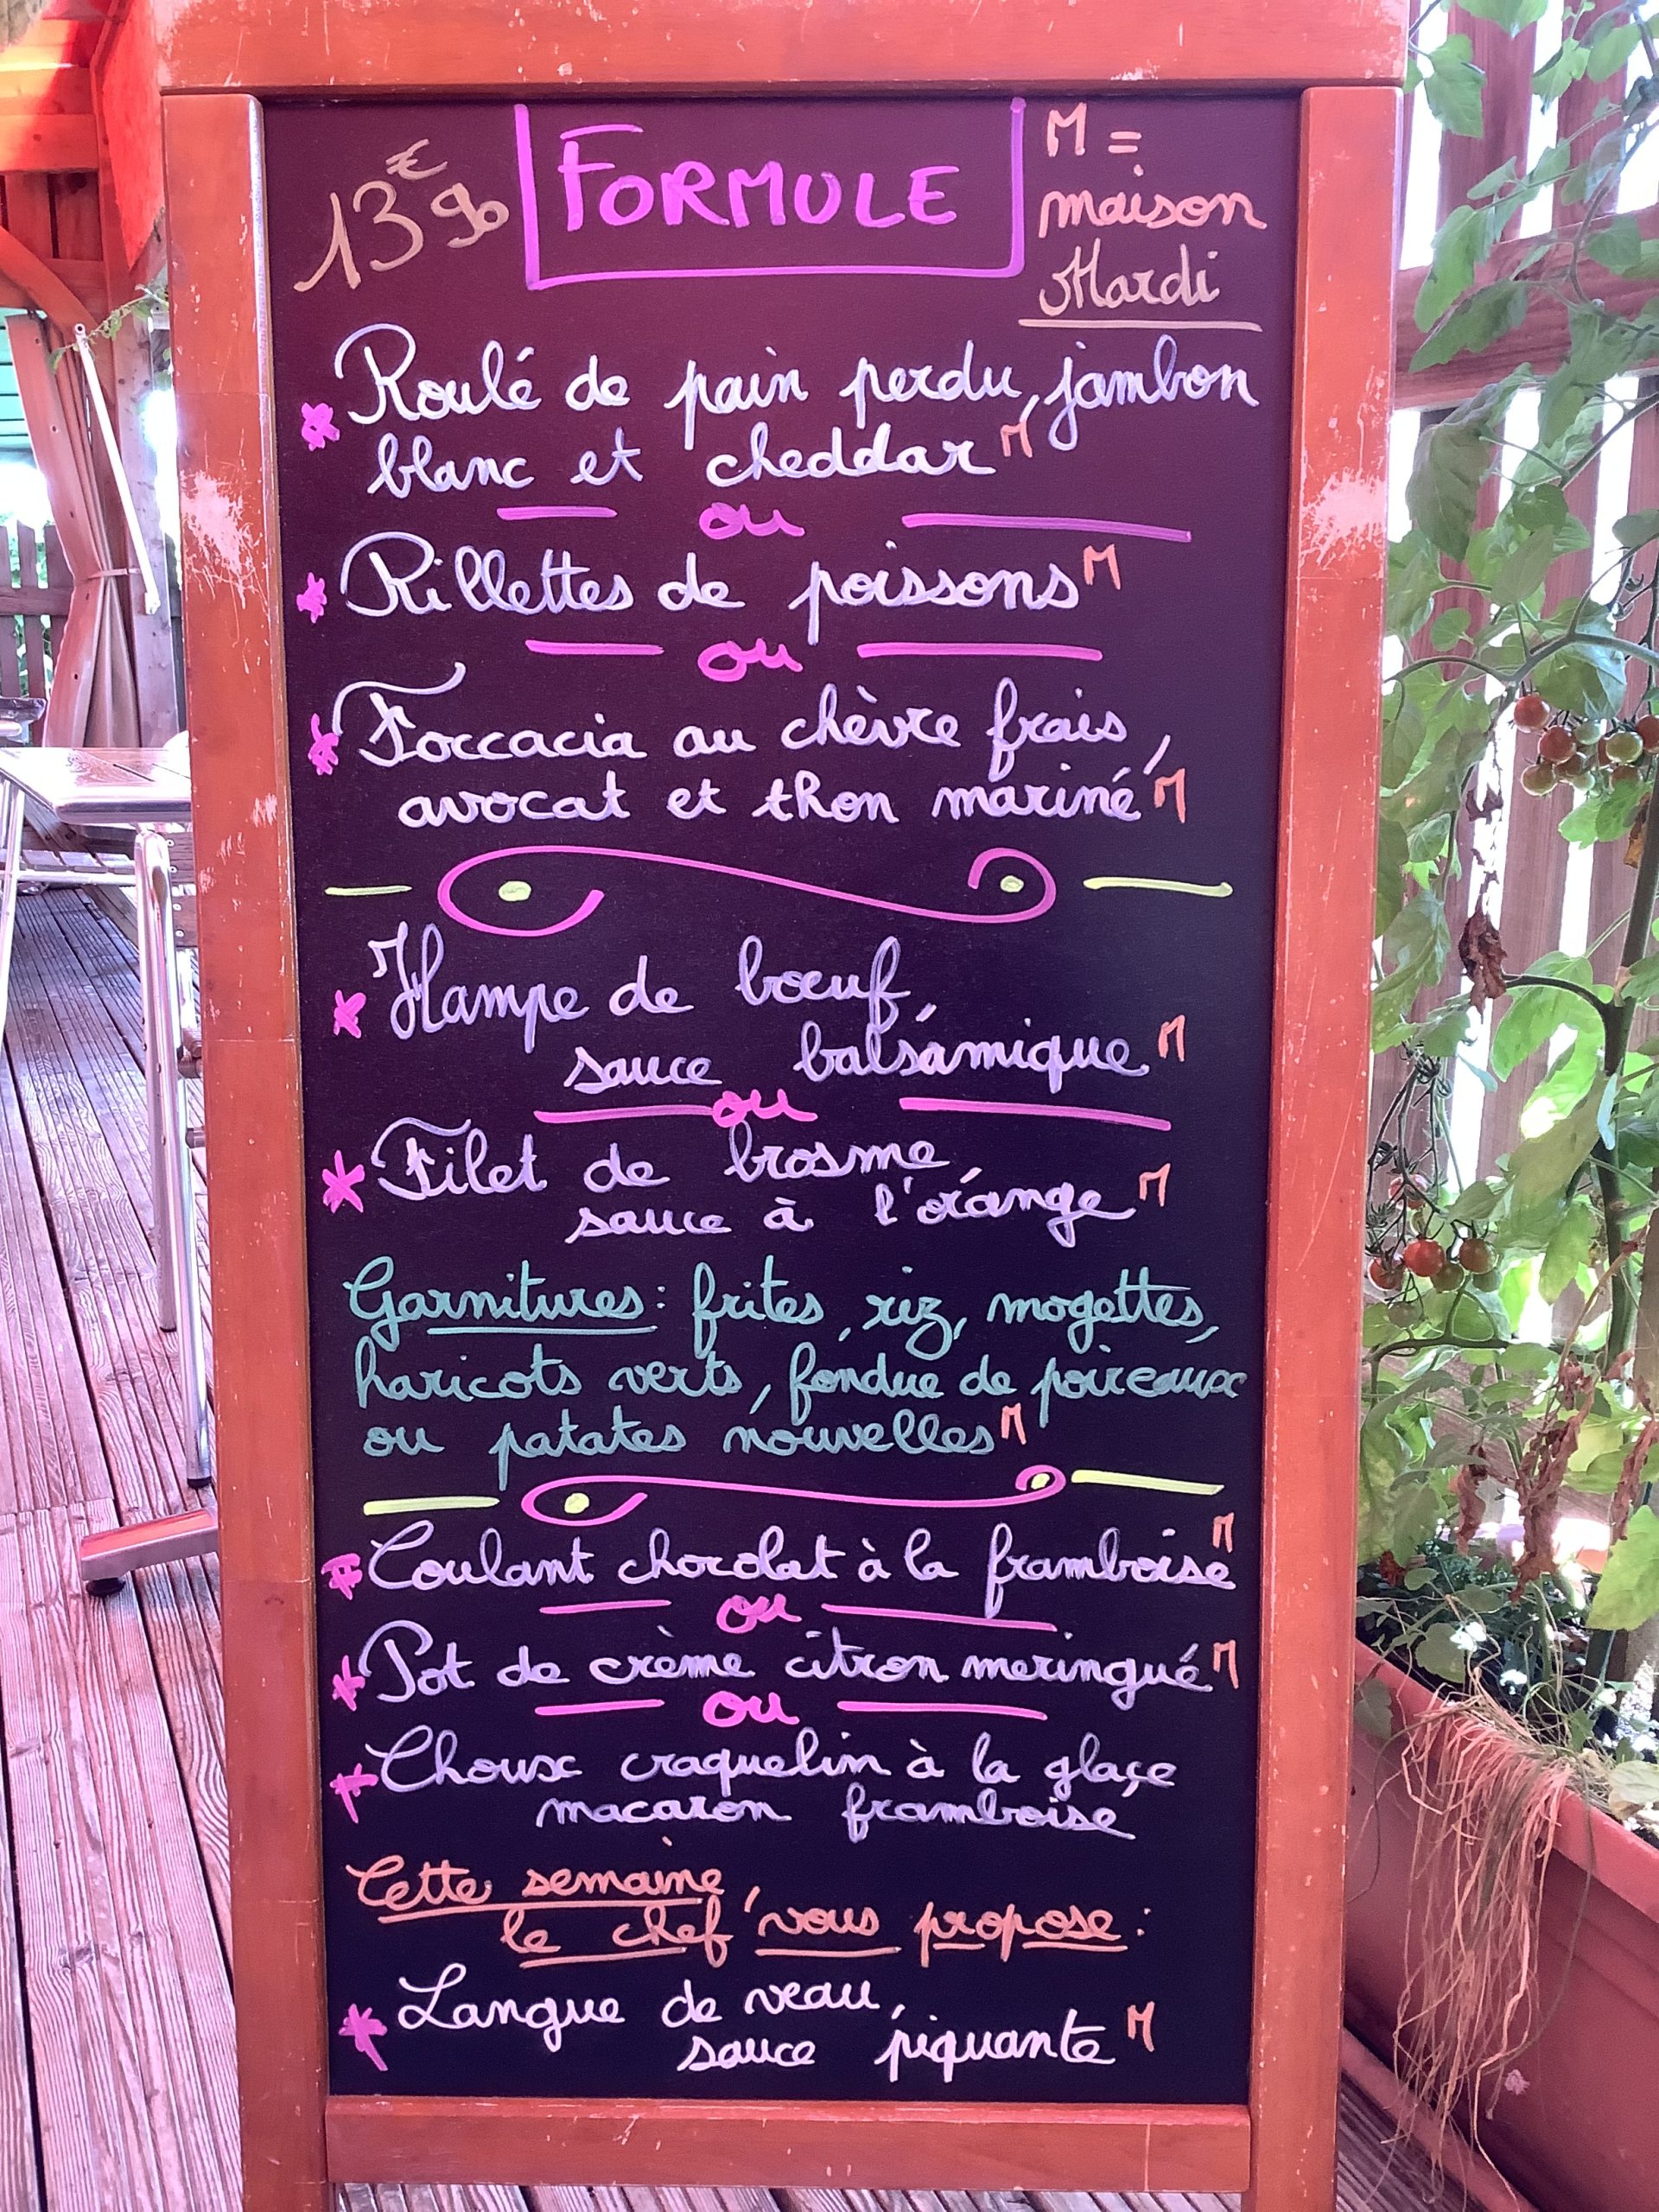 13€90 FORMULE M =
maison
Mardi
* Roulé de pain perdu, jambon
blanc et cheddar M
ou
* Rillettes de poissons M
ou
* Foccacia au chèvre frais,
avocat et thon mariné M
* Hampe de boeuf,
sauce balsamique M
ou
* Filet de brosme,
sauce à l'orange M
Garnitures : frites, riz, mogettes,
haricots verts, fondue de poireaux
ou patates nouvelles M
* Coulant chocolat à la framboise M
ou
* Pot de crème citron meringué M
ou
* Choux craquelin à la glaçe
macaron framboise
Cette semaine,
le chef vous propose :
* Langue de veau,
sauce piquante M